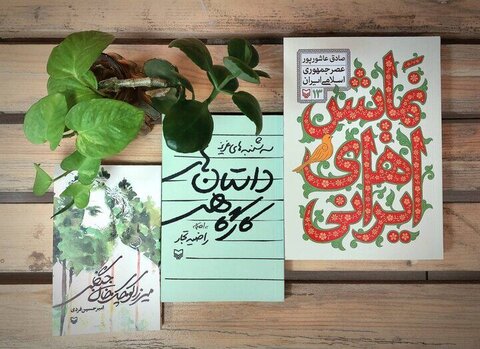 صادق عاشورپور
عصر جمهوری
اسلامی ایران
۱۳
نمایش
های
ایرانی
سه‌شنبه‌های عزیز
داستان‌های
کارگاهی
راضیه تجار
میرزا کوچک خان جنگلی
امیرحسین فردی